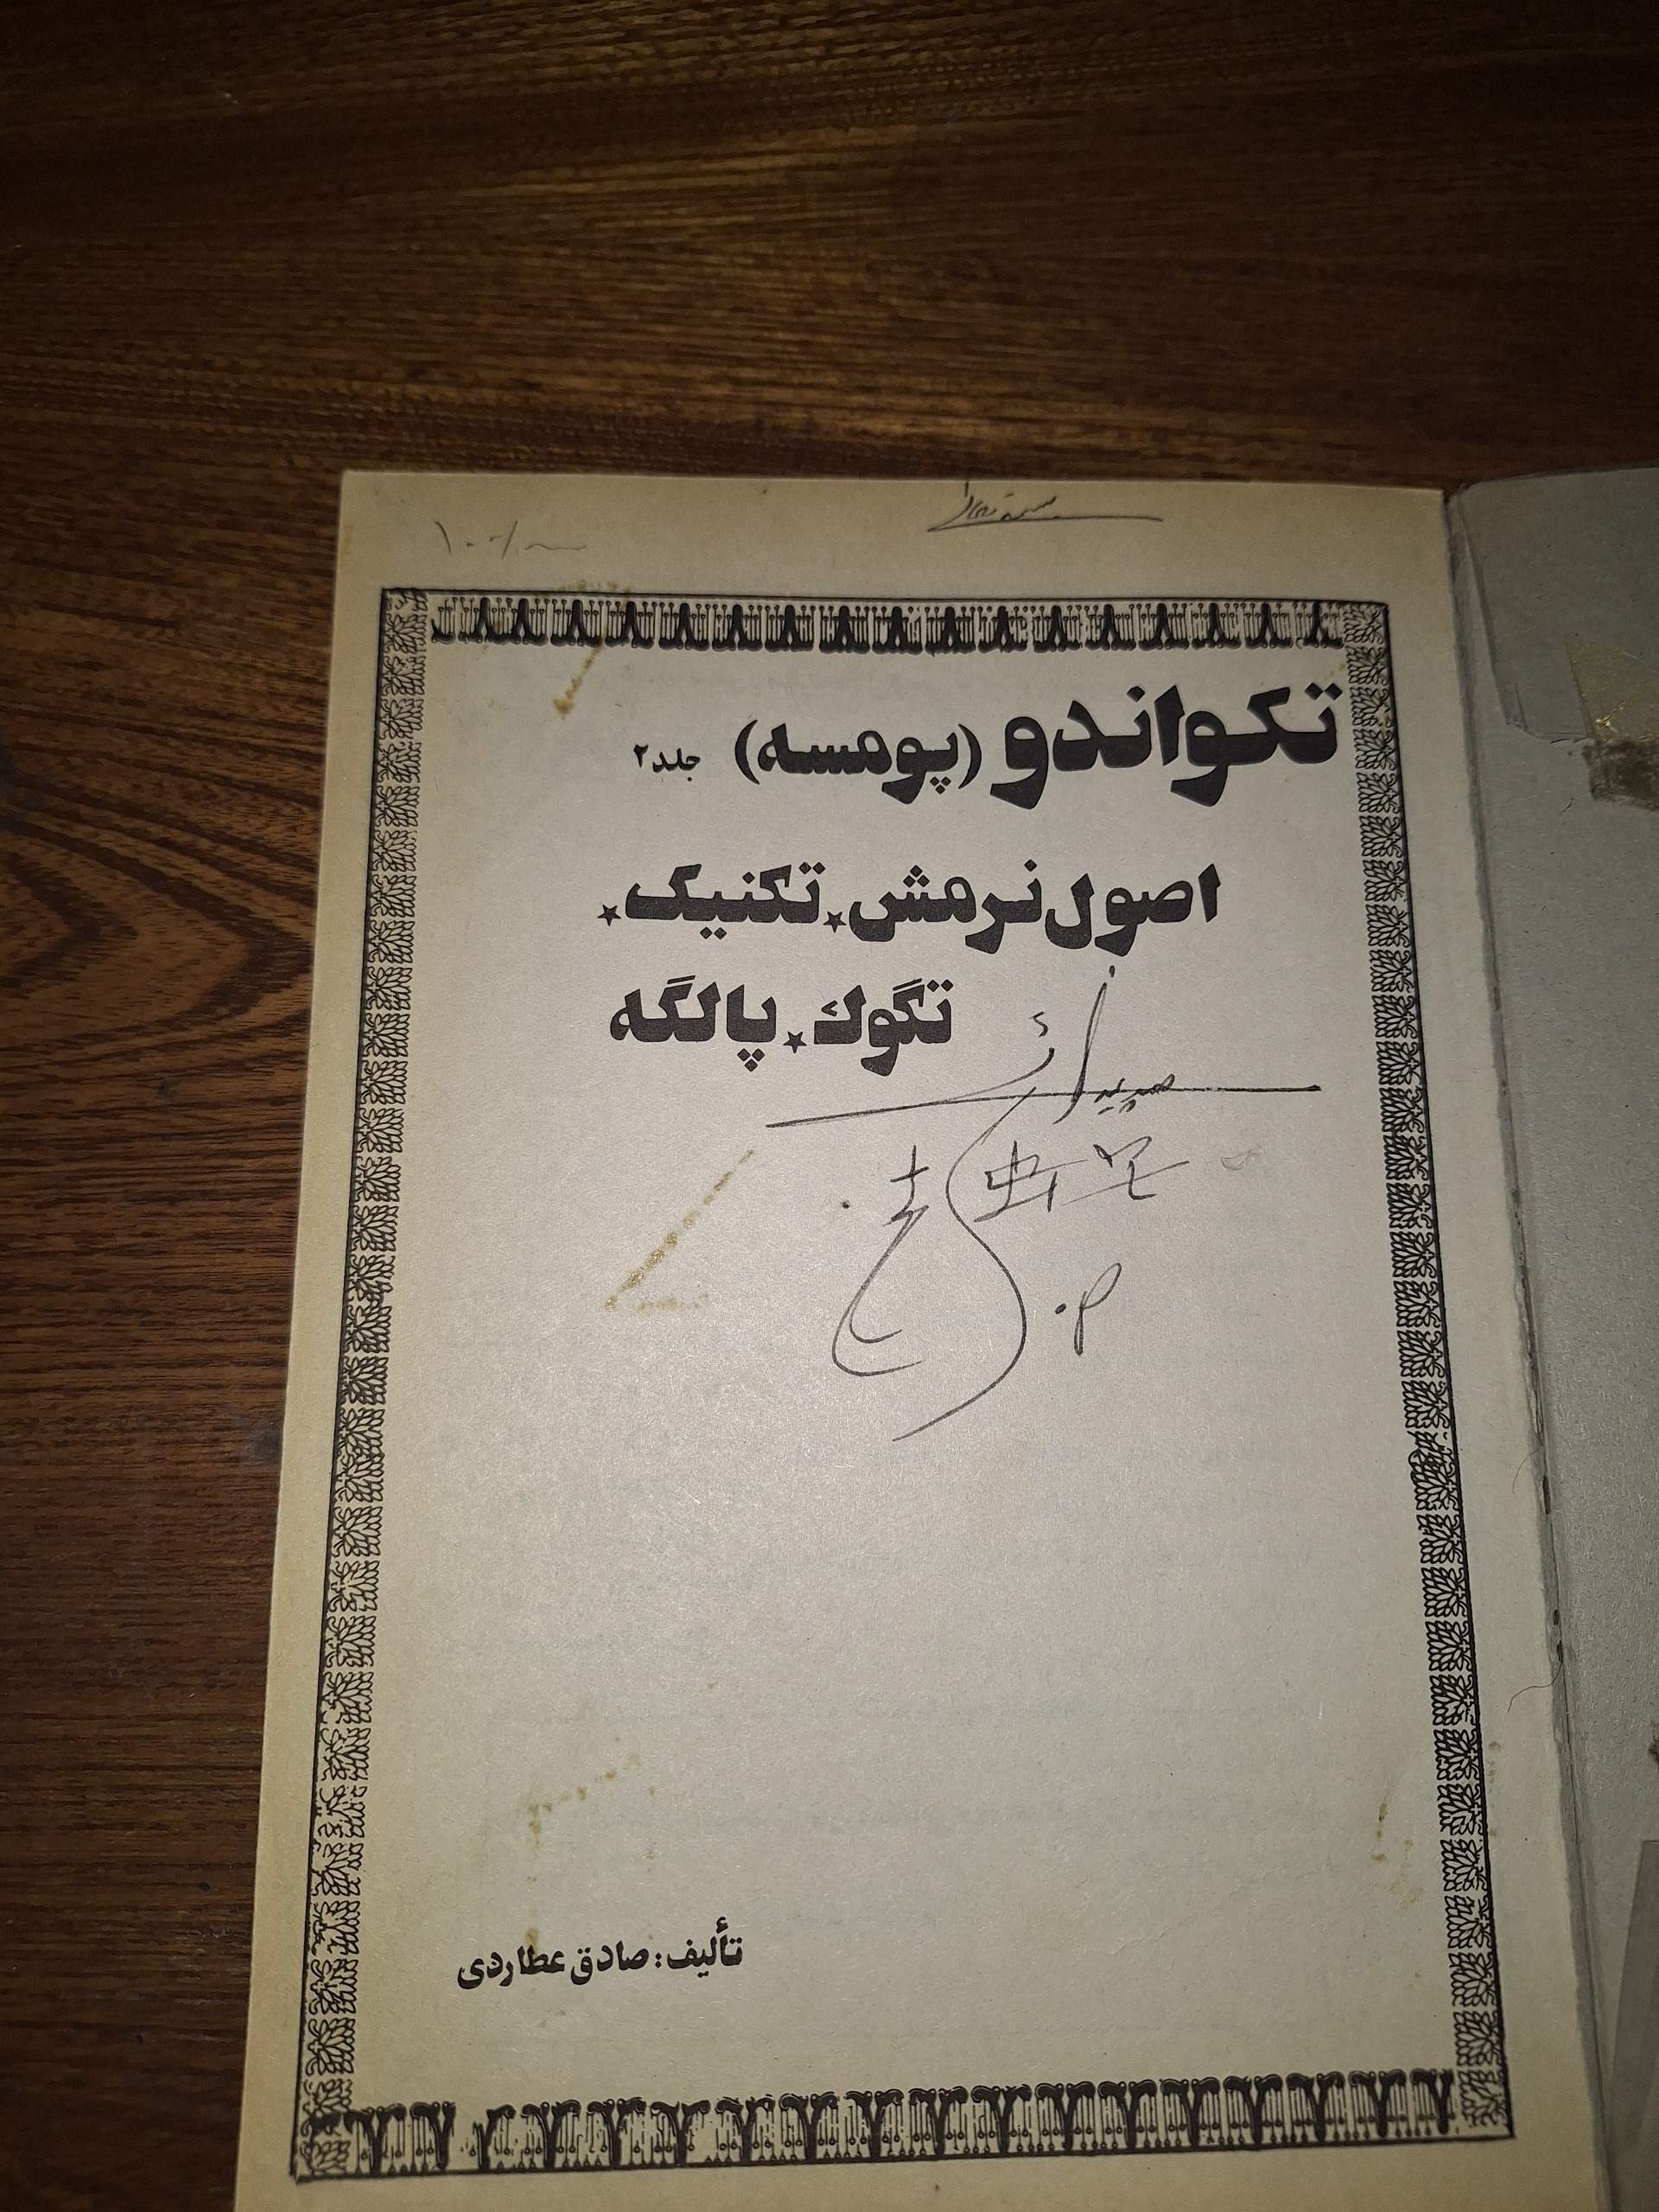 تکواندو (پومسه) جلد ۲
اصول نرمش٭تکنیک٭
تگوك٭پالگه
تألیف: صادق عطاردی